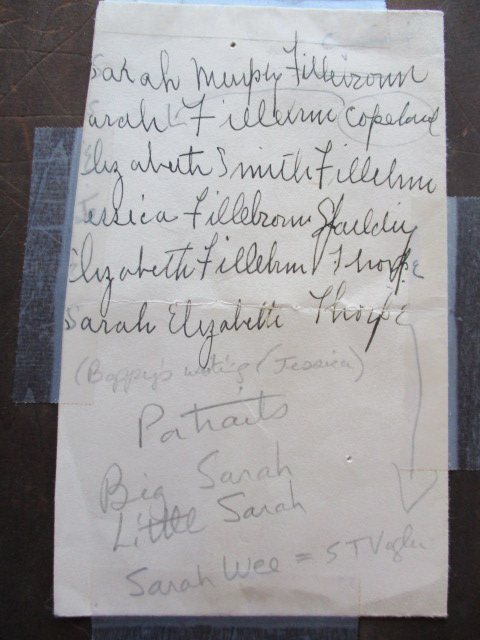 Sarah Murphy Fillebrown
Sarah L Fillebrown Copeland
Elizabeth Smith Fillebrown
Jessica Fillebrown Spaulding
Elizabeth Fillebrown Thorpe
Sarah Elizabeth Thorpe
(Boppy's writing (Jessica)
Portraits
Big Sarah
Little Sarah
Sarah Wee = S T